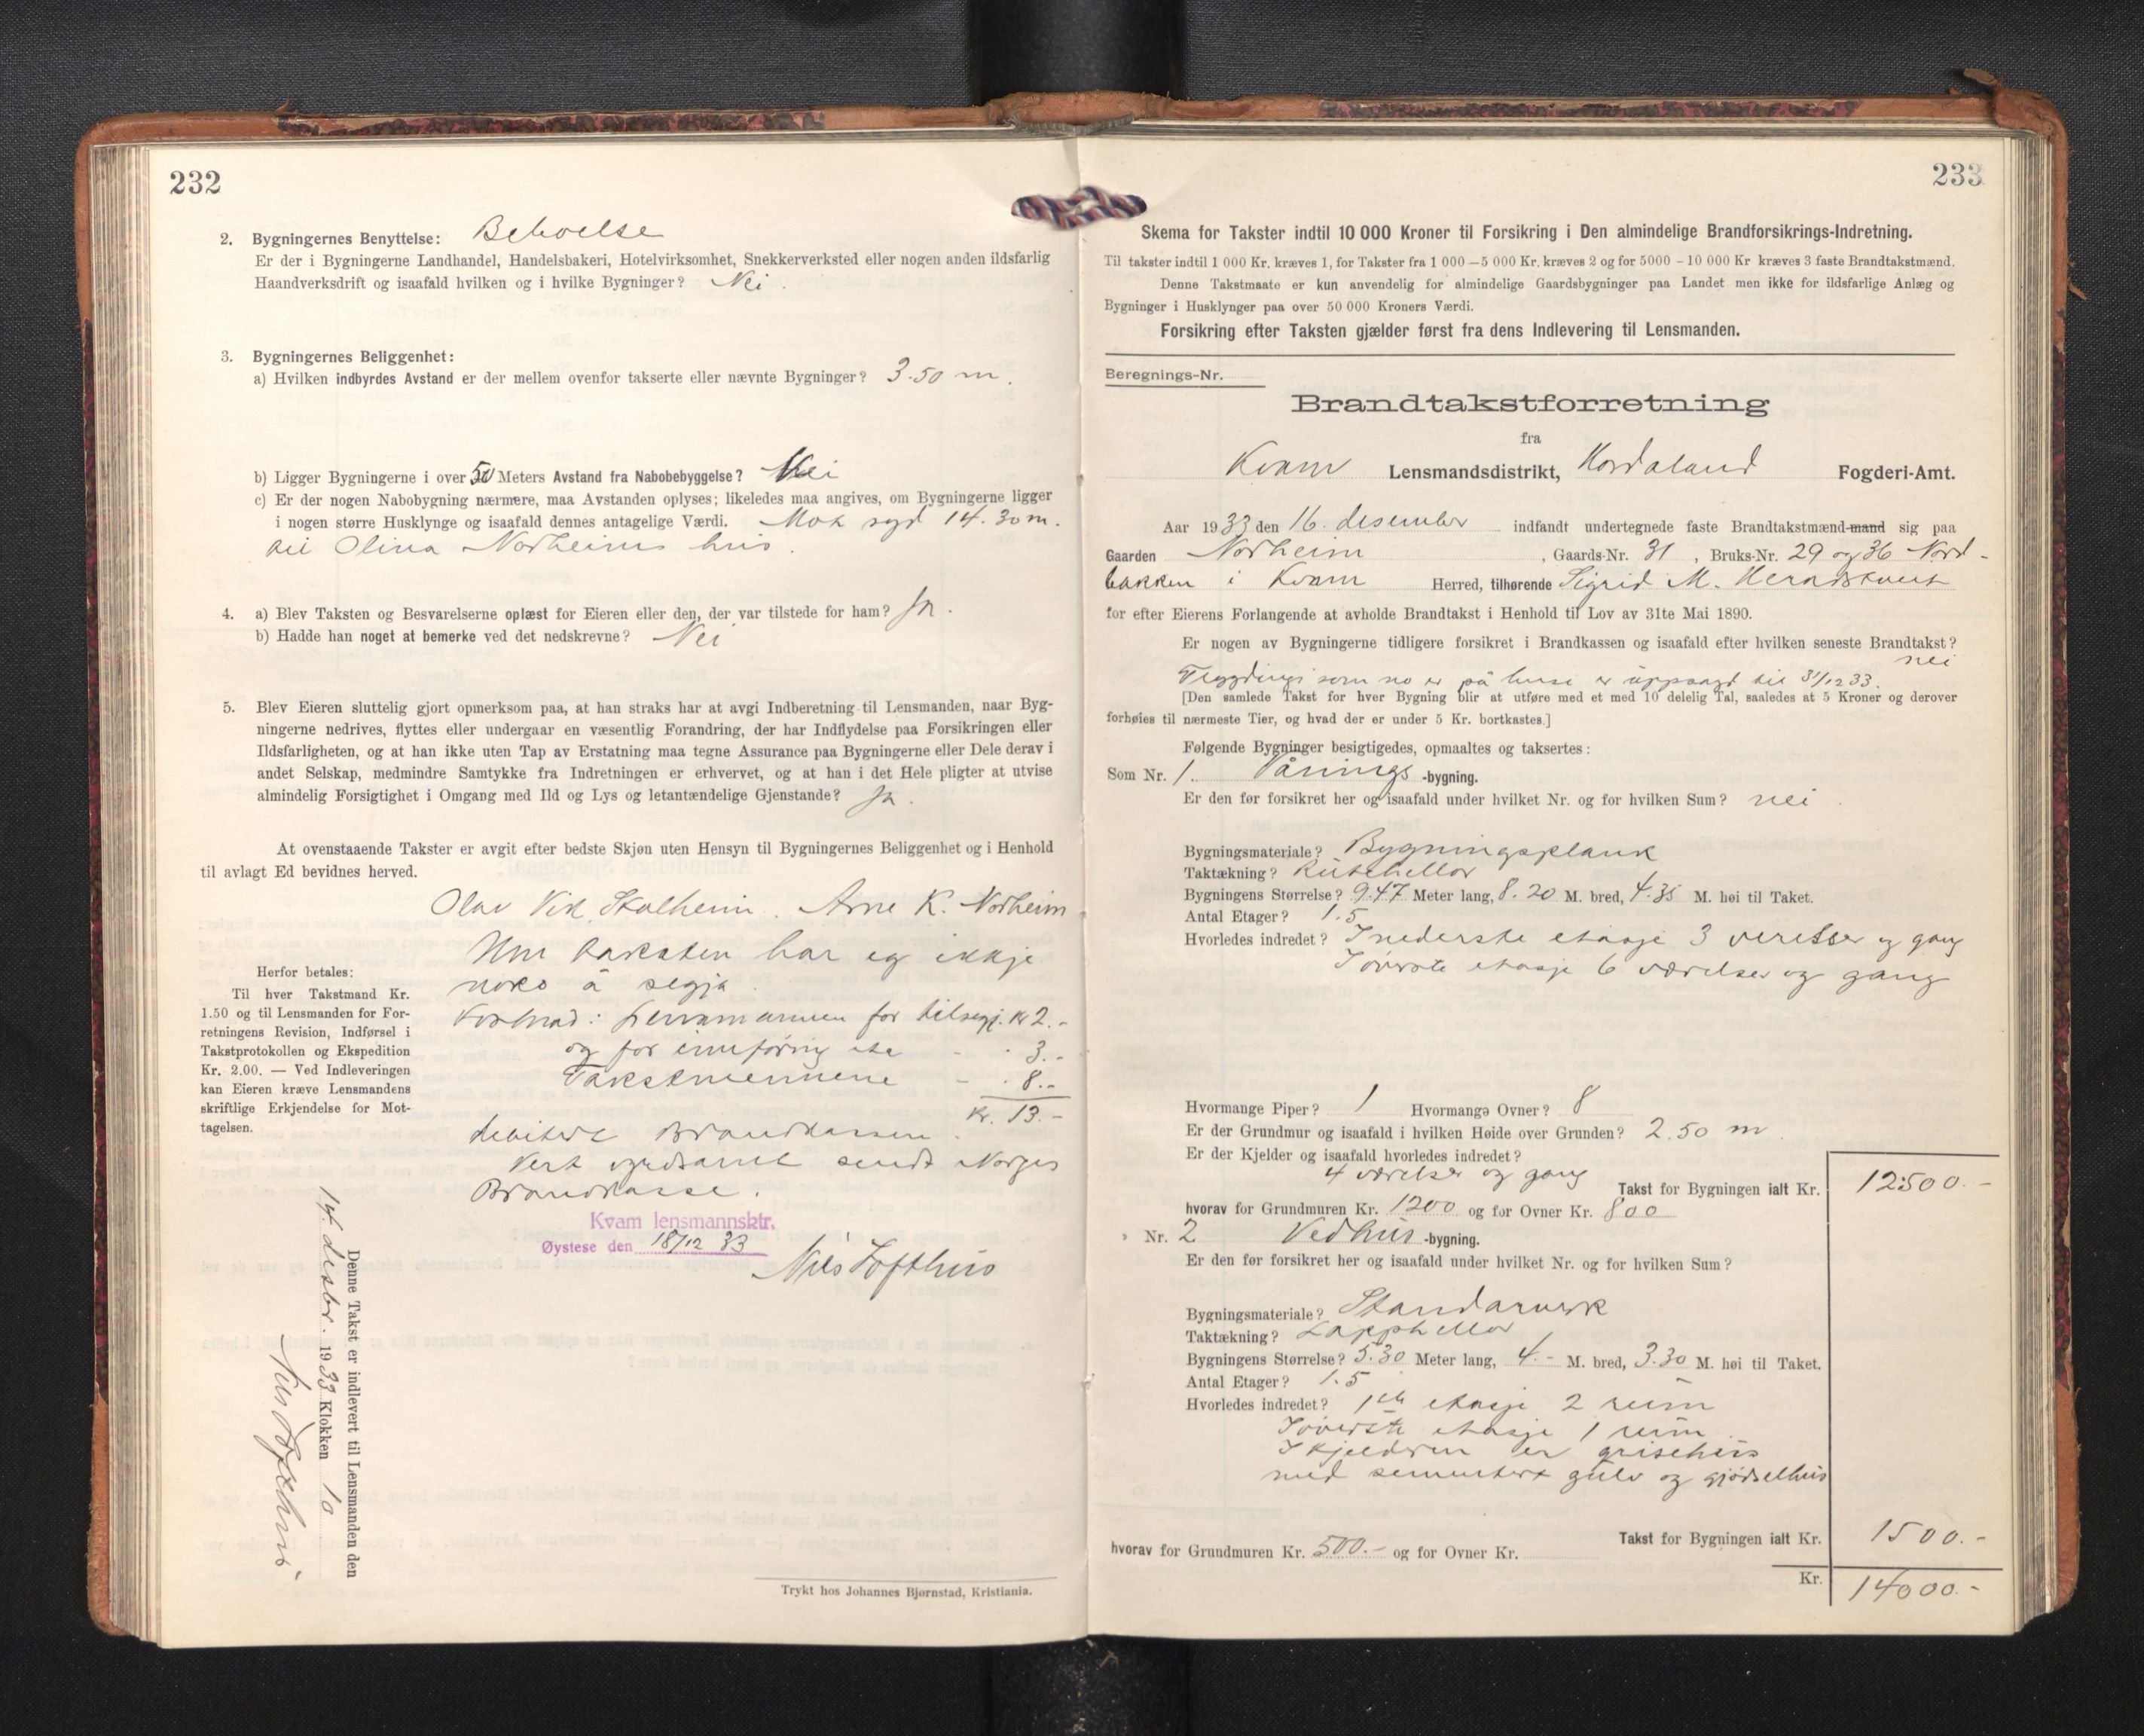 232
2. Bygningernes Benyttelse: Beboelse
Er der i Bygningerne Landhandel, Handelsbakeri, Hotelvirksomhet, Snekkerverksted eller nogen anden ildsfarlig
Haandverksdrift og isaafald hvilken og i hvilke Bygninger? Nei.
3. Bygningernes Beliggenhet:
a) Hvilken indbyrdes Avstand er der mellem ovenfor takserte eller nævnte Bygninger? 3.50 m.
b) Ligger Bygningerne i over 50 Meters Avstand fra Nabobebyggelse? Nei
c) Er der nogen Nabobygning nærmere, maa Avstanden oplyses; likeledes maa angives, om Bygningerne ligger
i nogen større Husklynge og isaafald dennes antagelige Værdi. Mot syd 14.30 m.
til Olina Norheims hus.
4. a) Blev Taksten og Besvarelserne oplæst for Eieren eller den, der var tilstede for ham? Ja.
b) Hadde han noget at bemerke ved det nedskrevne? Nei
5. Blev Eieren sluttelig gjort opmerksom paa, at han straks har at avgi Indberetning til Lensmanden, naar Byg-
ningerne nedrives, flyttes eller undergaar en væsentlig Forandring, der har Indflydelse paa Forsikringen eller
Ildsfarligheten, og at han ikke uten Tap av Erstatning maa tegne Assurance paa Bygningerne eller Dele derav i
andet Selskap, medmindre Samtykke fra Indretningen er erhvervet, og at han i det Hele pligter at utvise
almindelig Forsigtighet i Omgang med Ild og Lys og letantændelige Gjenstande? Ja.
At ovenstaaende Takster er avgit efter bedste Skjøn uten Hensyn til Bygningernes Beliggenhet og i Henhold
til avlagt Ed bevidnes herved.
Olav Vik Skalheim. Arne K. Norheim
Um taksten har eg ikkje
noko å segja.
Kostnad: Lensmannen for tilsegj. kr 2.-
og for innføring etc - " 3.-
Takstmennene - " 8.-
Kr. 13.-
debitert Brandkassen.
Vert vyrdsamt sendt Norges
Brandkasse.
Kvam lensmannsktr.
Øystese den 18/12 33
Nils Tofthus
Herfor betales:
Til hver Takstmand Kr.
1.50 og til Lensmanden for For-
retningens Revision, Indførsel i
Takstprotokollen og Ekspedition
Kr. 2.00. — Ved Indleveringen
kan Eieren kræve Lensmandens
skriftlige Erkjendelse for Mot-
tagelsen.
Denne Takst er indlevert til Lensmanden den
14 desbr. 1933 Klokken 10
Nils Tofthus
Trykt hos Johannes Bjørnstad, Kristiania.
233
Skema for Takster indtil 10 000 Kroner til Forsikring i Den almindelige Brandforsikrings-Indretning.
Til takster indtil 1 000 Kr. kræves 1, for Takster fra 1 000 — 5 000 Kr. kræves 2 og for 5000 - 10 000 Kr kræves 3 faste Brandtakstmænd.
Denne Takstmaate er kun anvendelig for almindelige Gaardsbygninger paa Landet men ikke for ildsfarlige Anlæg og
Bygninger i Husklynger paa over 50 000 Kroners Værdi.
Forsikring efter Taksten gjælder først fra dens Indlevering til Lensmanden.
Beregnings-Nr.
Brandtakstforretning
fra
Kvam Lensmandsdistrikt, Hordaland Fogderi-Amt.
Aar 1933 den 16. desember indfandt undertegnede faste Brandtakstmænd-mand sig paa
Gaarden Norheim, Gaards-Nr. 31, Bruks-Nr. 29 og 36 Nord-
bakken i Kvam Herred, tilhørende Sigrid M.
for efter Eierens Forlangende at avholde Brandtakst i Henhold til Lov av 31te Mai 1890.
Er nogen av Bygningerne tidligere forsikret i Brandkassen og isaafald efter hvilken seneste Brandtakst?
nei
Trygdingi som no er på huse er uppsagt til 31/12 33.
[Den samlede Takst for hver Bygning blir at utføre med et med 10 delelig Tal, saaledes at 5 Kroner og derover
forhøies til nærmeste Tier, og hvad der er under 5 Kr. bortkastes.]
Følgende Bygninger besigtigedes, opmaaltes og taksertes:
Som Nr. 1. Vånings-bygning.
Er den før forsikret her og isaafald under hvilket Nr. og for hvilken Sum? nei.
Bygningsmateriale? Bygningsplank
Taktækning? Rutehellor
Bygningens Størrelse? 9.47 Meter lang, 8.20 M. bred, 4.35 M. høi til Taket.
Antal Etager? 1.5
Hvorledes indredet? I nederste etasje 3 verelser og gang
I øverste etasje 6 værelser og gang
Hvormange Piper? 1 Hvormange Ovner? 8
Er der Grundmur og isaafald i hvilken Høide over Grunden? 2.50 m
Er der Kjelder og isaafald hvorledes indredet?
4 værelser og gang
Takst for Bygningen ialt Kr. 12500.-
hvorav for Grundmuren Kr. 1200 og for Ovner Kr. 800
Nr. 2 Vedhus-bygning.
Er den før forsikret her og isaafald under hvilket Nr. og for hvilken Sum?
Bygningsmateriale? Standarverk
Taktækning? Lapphellor
Bygningens Størrelse? 5.30 Meter lang, 4.- M. bred, 3.30 M. høi til Taket.
Antal Etager? 1.5
Hvorledes indredet? 1ste etasje 2 rum
I øverste etasje 1 rum.
I kjelderen er grisehus
med sementert gulv og gjødselhus
Takst for Bygningen ialt Kr. 1500.-
hvorav for Grundmuren Kr. 500.- og for Ovner Kr.
Kr. 14000.-